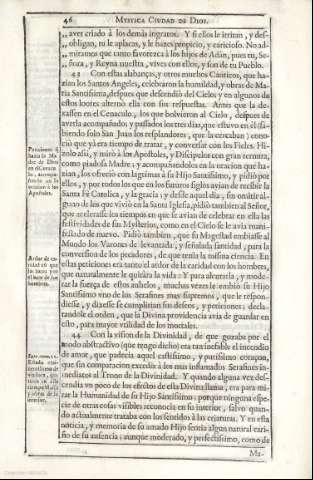 46 MYSTICA CIUDAD DE DIOS.
„ aver criado à los demás ingratos. Y si ellos te irritan, y des-
„ obligan, tu le aplacas, y le hazes propicio, y caricioso. No ad-
„ miramos que tanto favorezca à los hijos de Adàn, pues tu, Se-
„ ñora, y Reyna nuestra, vives con ellos, y son de tu Pueblo.
43 Con estas alabanças, y otros muchos Canticos, que ha-
zian los Santos Angeles, celebraron la humildad, y obras de Ma-
ria Santissima, despues que descendiò del Cielo; y en algunos de
estos loores alternò ella con sus respuestas. Antes que la de-
xassen en el Cenaculo, los que bolvieron al Cielo, despues de
averla acompañado, y passados los tres dias, que estuvo en èl (sa-
biendo solo San Juan los resplandores, que la cercaban) cono-
ciò que yà era tiempo de tratar, y conversar con los Fieles. Hi-
zolo assi, y mirò à los Apostoles, y Discipulos con gran ternura,
como piadosa Madre, y acompañandolos en la oracion que ha-
zian, los ofreciò con lagrimas à su Hijo Santissimo, y pidiò por
ellos, y por todos los que en los futuros siglos avian de recibir la
Santa Fè Catolica, y la gracia; y desde aquel dia, sin omitir al-
guno de los que viviò en la Santa Iglesia, pidiò tambien al Señor,
que acelerasse los tiempos en que se avian de celebrar en ella las
festividades de sus Mysterios, como en el Cielo se le avia mani-
festado de nuevo. Pidiò tambien, que su Magestad embiasse al
Mundo los Varones de levantada, y señalada santidad, para la
conversion de los pecadores, de que tenia la misma ciencia. En
estas peticiones era tanto el ardor de la caridad con los hombres,
que naturalmente le quitára la vida: Y para alentarla, y mode-
rar la fuerça de estos anhelos, muchas vezes le embiò su Hijo
Santissimo uno de los Serafines mas supremos, que le respon-
diesse, y dixesse se cumplirian sus deseos, y peticiones; decla-
randole el orden, que la Divina providencia avia de guardar en
esto, para mayor utilidad de los mortales.
44 Con la vision de la Divinidad, de que gozaba por el
modo abstractivo (que tengo dicho) era tan inefable el incendio
de amor, que padecia aquel castissimo, y purissimo coraçon,
que sin comparacion excediò à los mas inflamados Serafines in-
mediatos al Trono de la Divinidad. Y quando alguna vez des-
cendia un poco de los efectos de esta Divina llama, era para mi-
rar la Humanidad de su Hijo Santissimo; porque ninguna espe-
cie de otras cosas visibles reconocia en su interior, salvo quan-
do actualmente trataba con los sentidos à las criaturas. Y en esta
noticia, y memoria de su amado Hijo sentia algun natural cari-
ño de su ausencia; aunque moderado, y perfectissimo, como de
Ma-